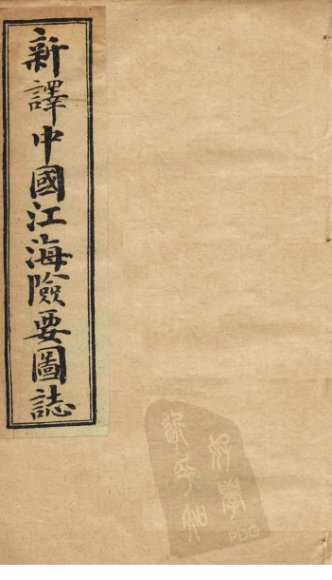 新譯中國江海險要圖誌
PDG